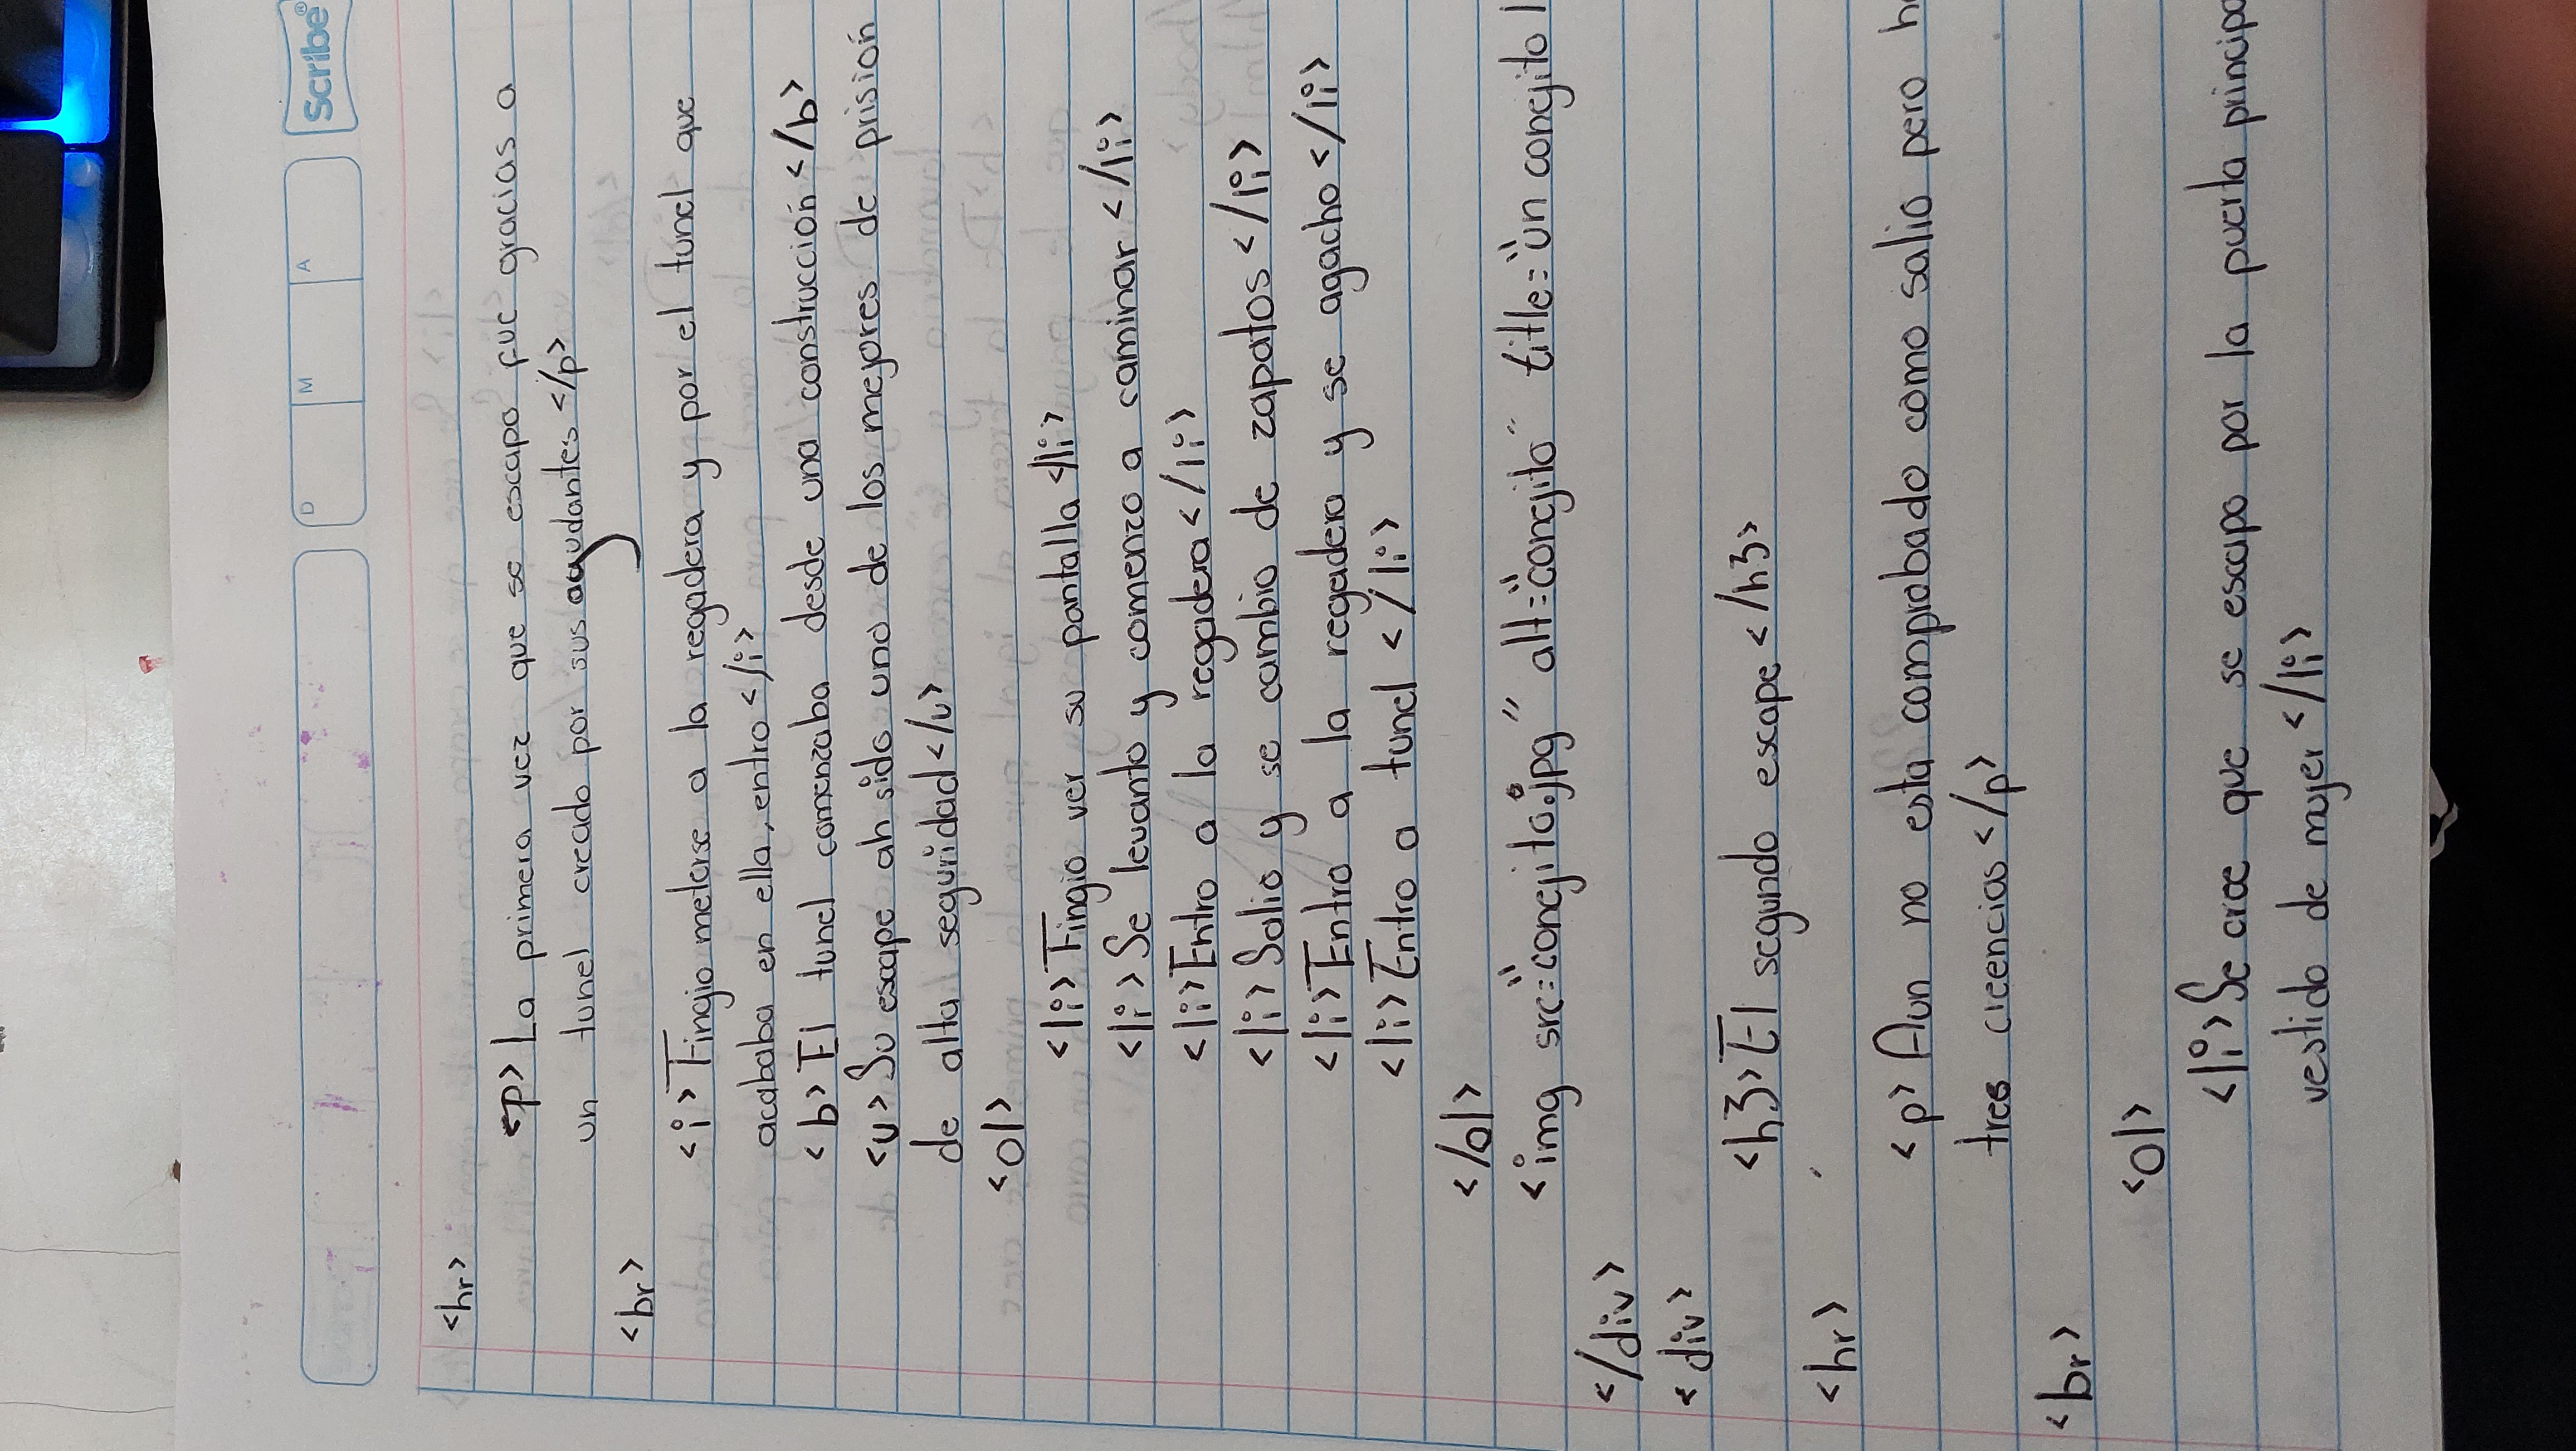 D M A Scribe®
<hr>
<p> La primera vez que se escapo fue gracias a
un tunel creado por sus ayudantes </p>
<br>
<i> Fingio meterse a la regadera y por el tunel que
acababa en ella, entro </i>
<b> El tunel comenzaba desde una construccioń </b>
<u> Su escape ah sido uno de los mejores de prisioń
de alta seguridad </u>
<ol>
<li> Fingio ver su pantalla </li>
<li> Se levanto y comenzo a caminar </li>
<li> Entro a la regadera </li>
<li> Salio y se cambio de zapatos </li>
<li> Entro a la regadera y se agacho </li>
<li> Entro a tunel </li>
</ol>
<img src="conejito.jpg" alt="conejito" title="un conejito
</div>
<div>
<h3> El segundo escape </h3>
<hr>
<p> Aun no esta comprobado como salio pero
tres creencias </p>
<br>
<ol>
<li> Se cree que se escapo por la puerta
vestido de mujer </li>